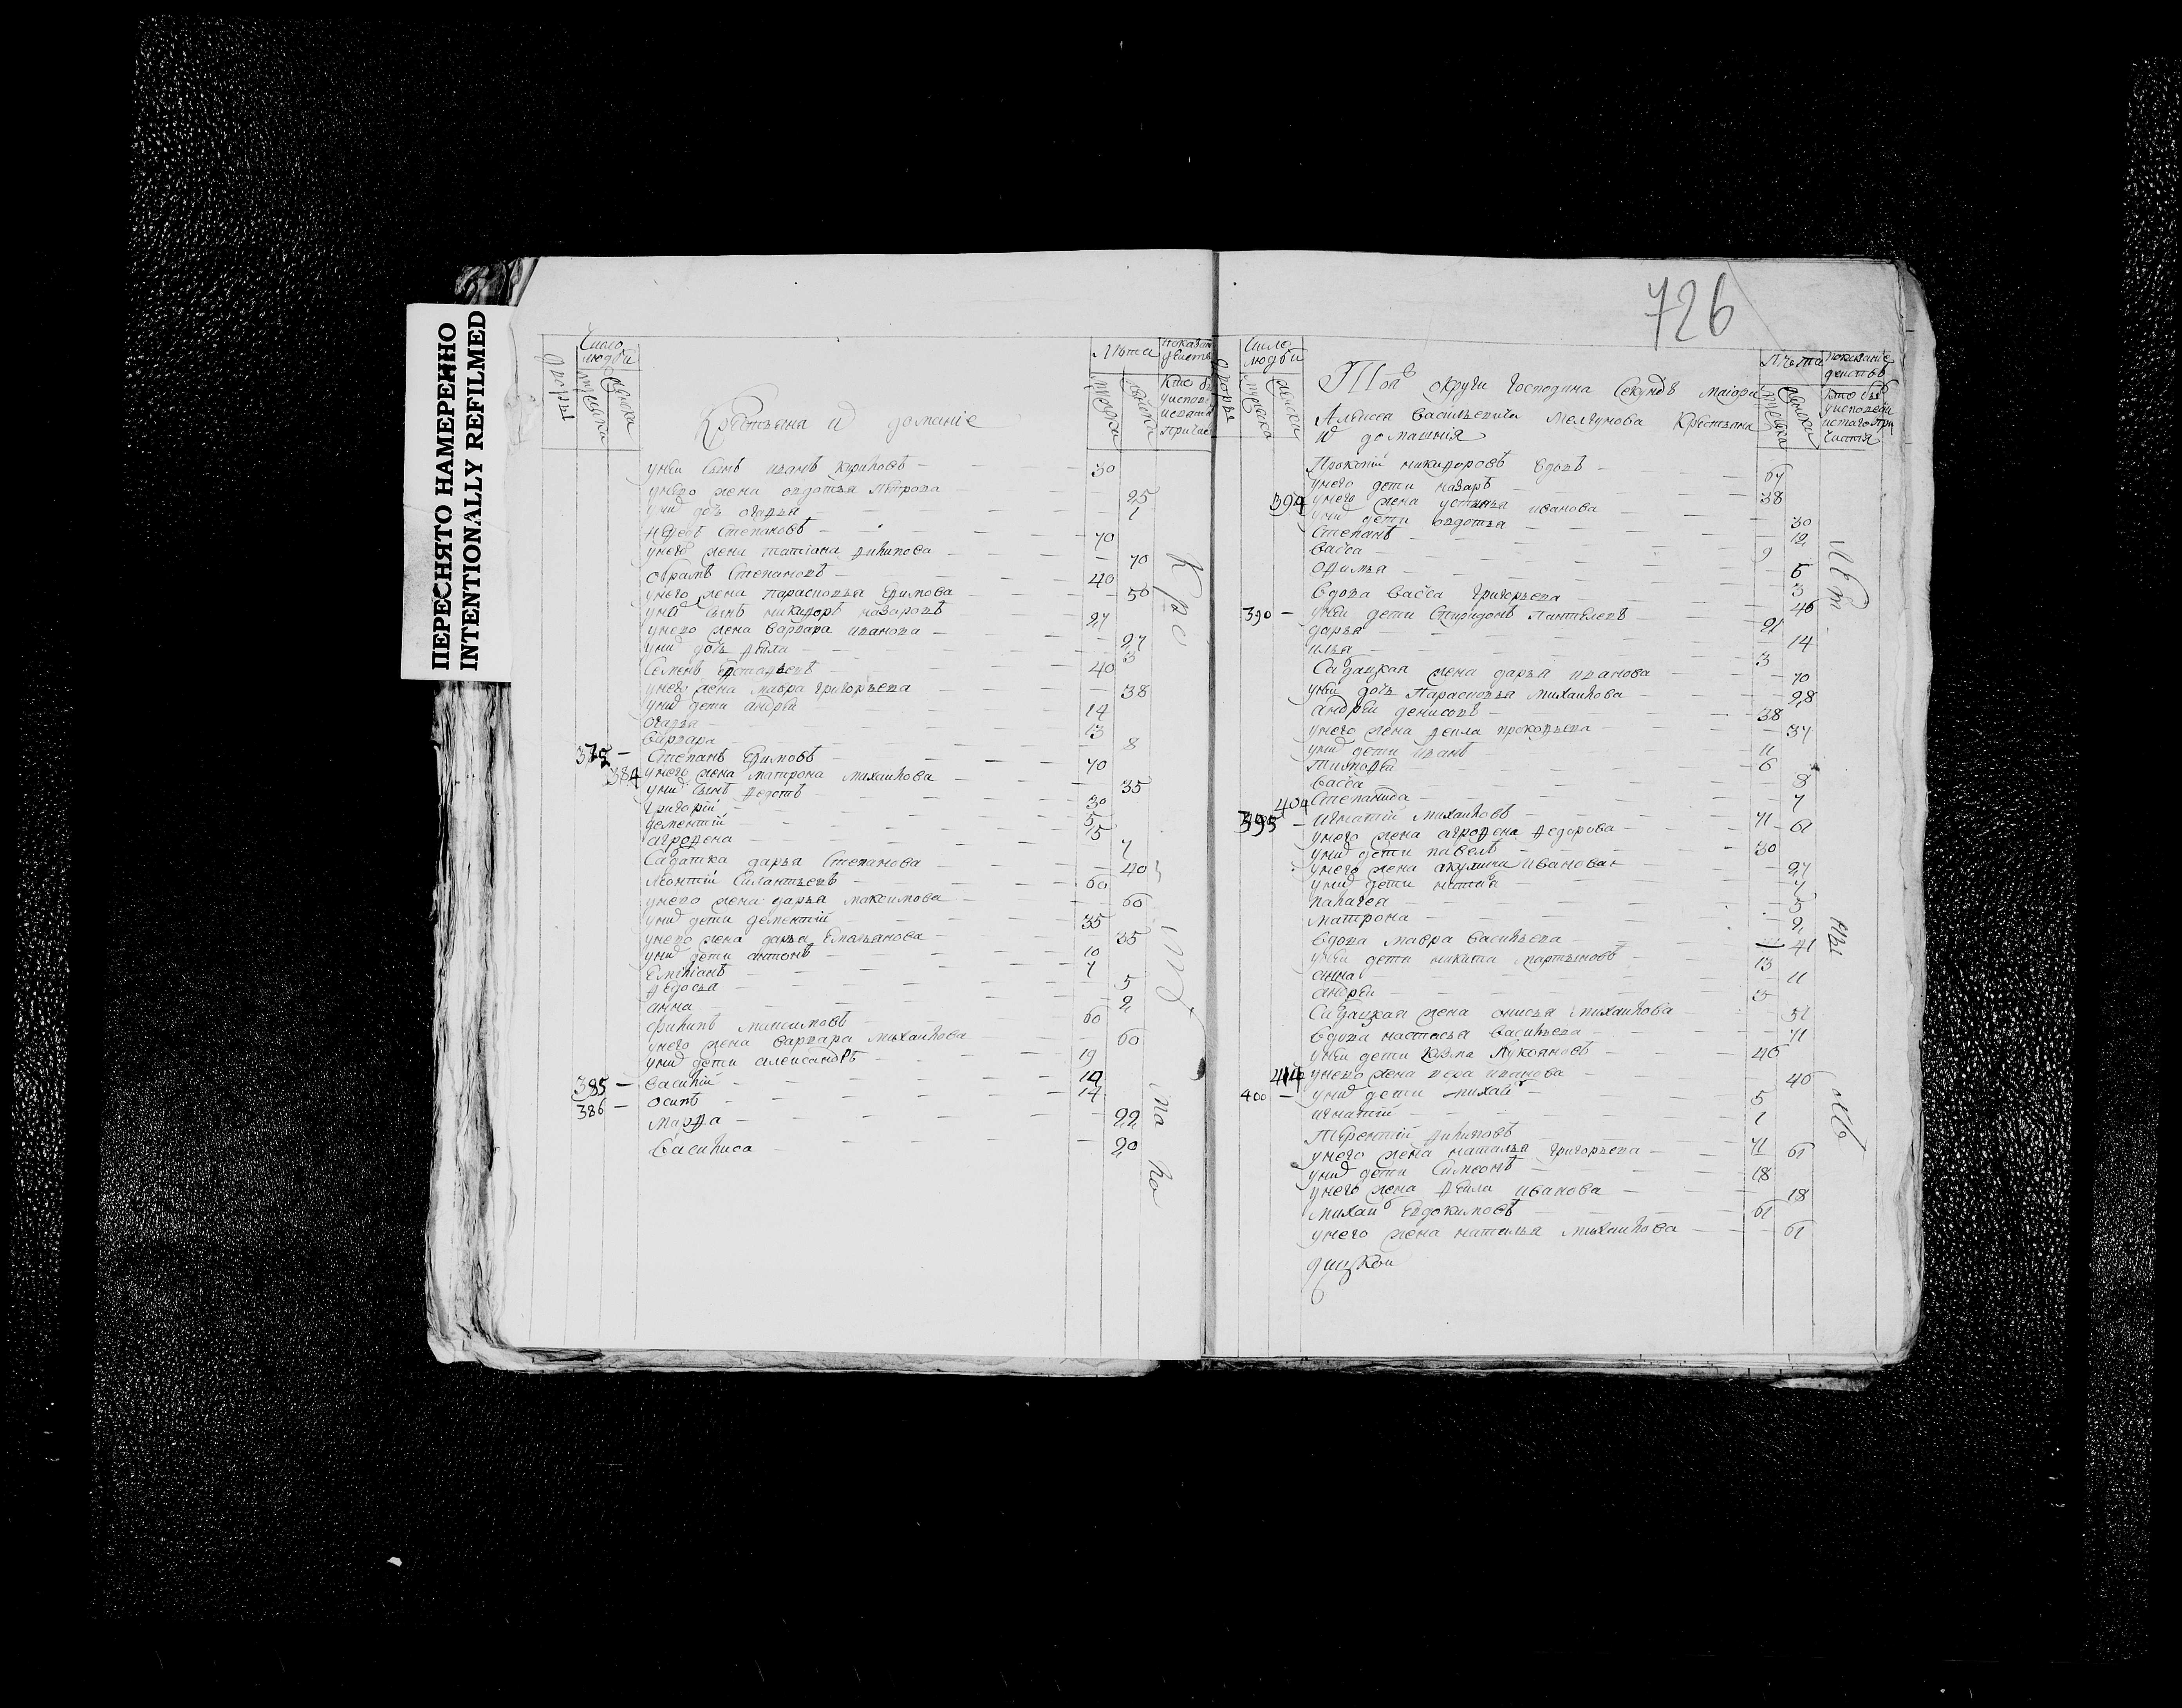 ПЕРЕСНЯТО НАМЕРЕННО
INTENTIONALLY REFILMED
726
Число людѣи
дворы
мужска
женска
Крестьяне и домашніе
Лѣта
мужска
женска
унеи сынъ иванъ кириловъ — 30
унего жена овдотья петрова — 25
унихъ дочь огафья — 1
Степановъ — 70
унего жена татіана филипова — 70
обрамъ Степановъ — 40
унего жена парасковья Ефимова — 50
сынъ никифоръ назаровъ — 27
унево жена варвара иванова — 27
унихъ дочь фекла — 3
Семенъ Евстафьевъ — 40
унего жена мавра григорьева — 38
унихъ дети андреи — 14
огафья — 13
варвара — 8
Степанъ Ефимовъ — 70
384 унего жена матрона михаилова — 35
унихъ сынъ федотъ — 30
григорій — 5
дементій — 5
агрофена — 7
Салдатка дарья Степанова — 40
леонтій Силантьевъ — 60
унево жена дарья максимова — 60
унихъ дети дементій — 35
унево жена дарья Емельянова — 35
унихъ дети антонъ — 10
Емеліанъ — 7
федосья — 5
анна — 2
филипъ максимовъ — 60
унего жена варвара михаилова — 60
унихъ дети александръ — 19
385 — василій — 14
386 — осипъ — 14
марфа — 22
василиса — 20
Число людѣи
дворы
мужска
женска
Тоиже округи господина Секундъ маиора
Алексея васильевича мелгунова Крестьяна
и домашнія
Лѣта
мужска
женска
показаніе действъ
кто былъ уисповеди истаго причастія
Прокопій никифоровъ вдовъ — 67
унего дети назаръ — 38
394 унего жена устинья иванова — 30
унихъ дети овдотья — 12
Степанъ — 9
васса — 5
офимья — 3
вдова васса григорьева — 46
390 — унеи дети Спиридонъ пантелеевъ — 21
дарья — 14
илья — 3
Салдацкая жена дарья иванова — 70
унеи дочь Парасковья михаилова — 28
андреи денисовъ — 38
унего жена фекла прокофьева — 37
унихъ дети иванъ — 11
тимофеи — 6
васса — 8
404 Степанида — 7
395 — игнатій михаиловъ — 71
унего жена агрофена федорова — 61
унихъ дети павелъ — 30
унего жена акулина иванова — 27
унихъ дети — 7
палагея — 5
матрона — 2
вдова мавра васильева — 41
унеи дети никита мартыновъ — 13
анна — 11
андреи — 5
Салдацкая жена онисья михаилова — 51
вдова настасья васильева — 71
унеи дети козма лукояновъ — 46
414 унево жена вера иванова — 40
400 — унихъ дети михаило — 5
игнатій — 1
терентій филиповъ — 71
унего жена наталья григорьева — 61
унихъ дети Симеонъ — 18
унего жена фекла иванова — 18
михаило Евдокимовъ — 61
унего жена наталья михаилова — 61